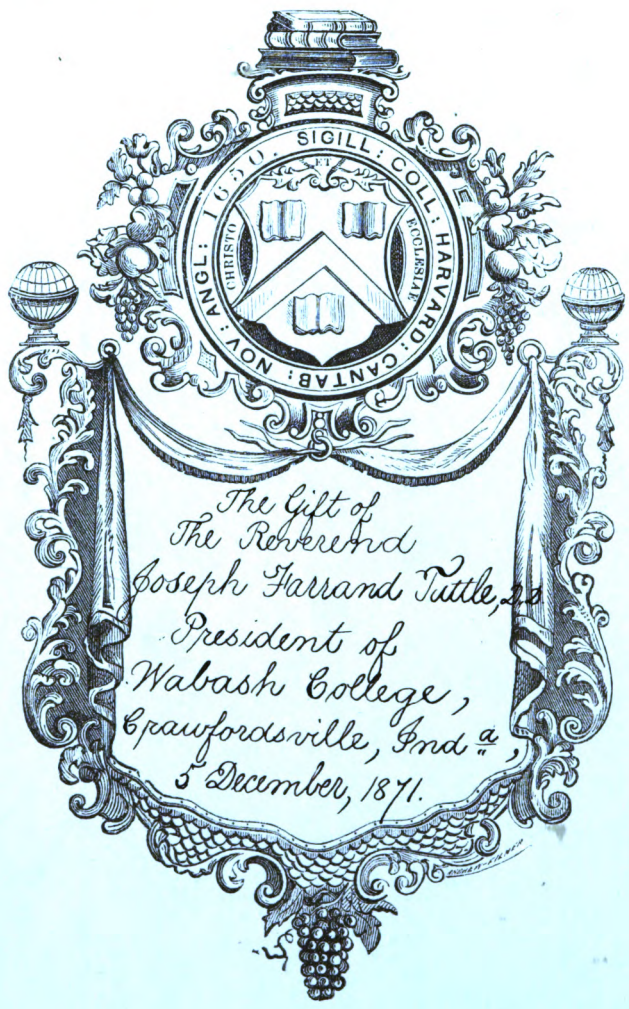 SIGILL: COLL: HARVARD: CANTAB: NOV: ANGL: 1650.
CHRISTO
ET
ECCLESIAE
The Gift of
The Reverend
Joseph Farrand Tuttle, D.D.
President of
Wabash College,
Crawfordsville, Ind a,
5 December, 1871.
ANDREW-FILMER